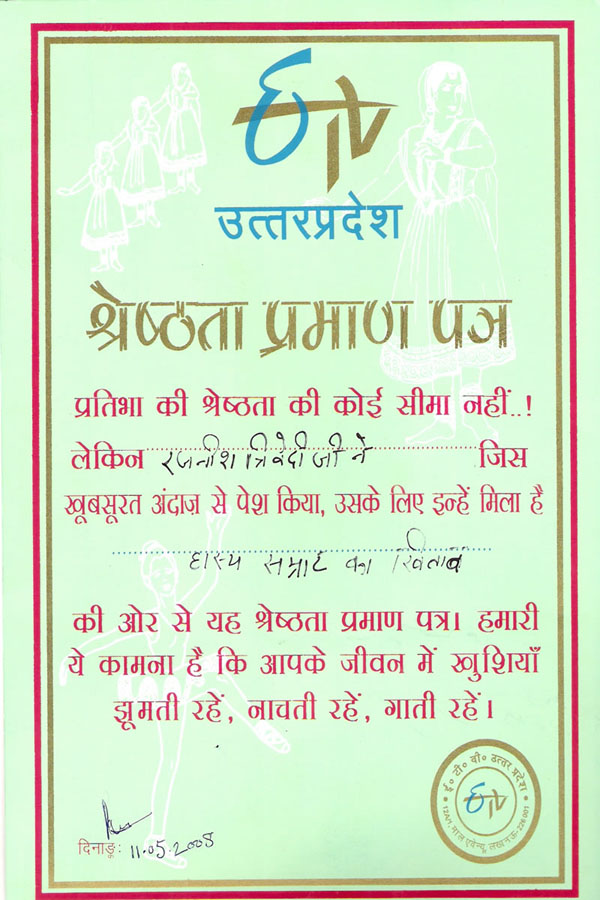 ETV
उत्तरप्रदेश
श्रेष्ठता प्रमाण पत्र
प्रतिभा की श्रेष्ठता की कोई सीमा नहीं..!
लेकिन रजनीश त्रिवेदी जी ने जिस
खूबसूरत अंदाज़ से पेश किया, उसके लिए इन्हें मिला है
हास्य सम्राट का खिताब
की ओर से यह श्रेष्ठता प्रमाण पत्र। हमारी
ये कामना है कि आपके जीवन में खुशियाँ
झूमती रहें, नाचती रहें, गाती रहें।
दिनाङ्कः 11.05.2005
ई० टी० वी० उत्तर प्रदेश
ETV
माल एवेन्यू, लखनऊ-226001